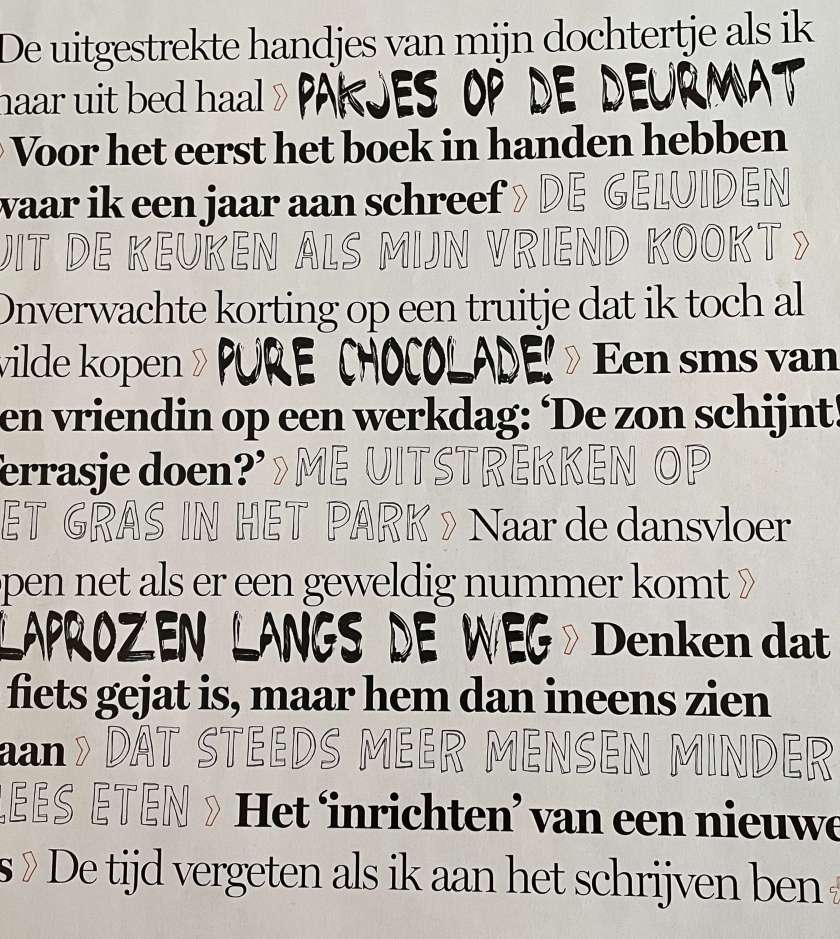 De uitgestrekte handjes van mijn dochtertje als ik
haar uit bed haal › PAKJES OP DE DEURMAT
› Voor het eerst het boek in handen hebben
waar ik een jaar aan schreef › DE GELUIDEN
UIT DE KEUKEN ALS MIJN VRIEND KOOKT ›
Onverwachte korting op een truitje dat ik toch al
wilde kopen › PURE CHOCOLADE! › Een sms van
en vriendin op een werkdag: ‘De zon schijnt!
Terrasje doen?’ › ME UITSTREKKEN OP
ET GRAS IN HET PARK › Naar de dansvloer
open net als er een geweldig nummer komt ›
LAPROZEN LANGS DE WEG › Denken dat
fiets gejat is, maar hem dan ineens zien
aan › DAT STEEDS MEER MENSEN MINDER
LEES ETEN › Het ‘inrichten’ van een nieuwe
s › De tijd vergeten als ik aan het schrijven ben